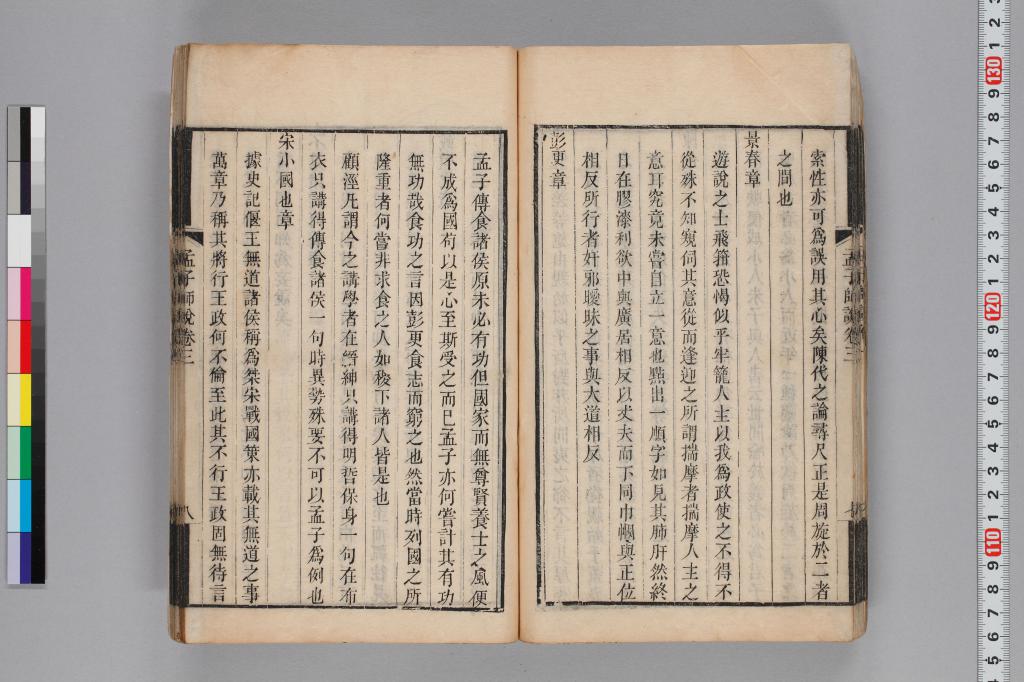 索性亦可爲誤用其心矣陳代之論尋尺正是周旋於二者
之間也
景春章
遊說之士飛箝恐愒似乎牢籠人主以我爲政使之不得不
從殊不知窺伺其意從而逢迎之所謂揣摩者揣摩人主之
意耳究竟未嘗自立一意也點出一順字如見其肺肝然終
日在膠漆利欲中與廣居相反以丈夫而下同巾幗與正位
相反所行者奸邪曖昧之事與大道相反
彭更章
孟子傳食諸侯原未必有功但國家而無尊賢養士之風便
不成爲國苟以是心至斯受之而已孟子亦何嘗計其有功
無功哉食功之言因彭更食志而窮之也然當時列國之所
隆重者何嘗非求食之人如稷下諸人皆是也
顧涇凡謂今之講學者在縉紳只講得明哲保身一句在布
衣只講得傳食諸侯一句時異勢殊要不可以孟子爲例也
宋小國也章
據史記偃王無道諸侯稱爲桀宋戰國策亦載其無道之事
萬章乃稱其將行王政何不倫至此其不行王政固無待言
孟子師說卷三
八
孟子師說卷三